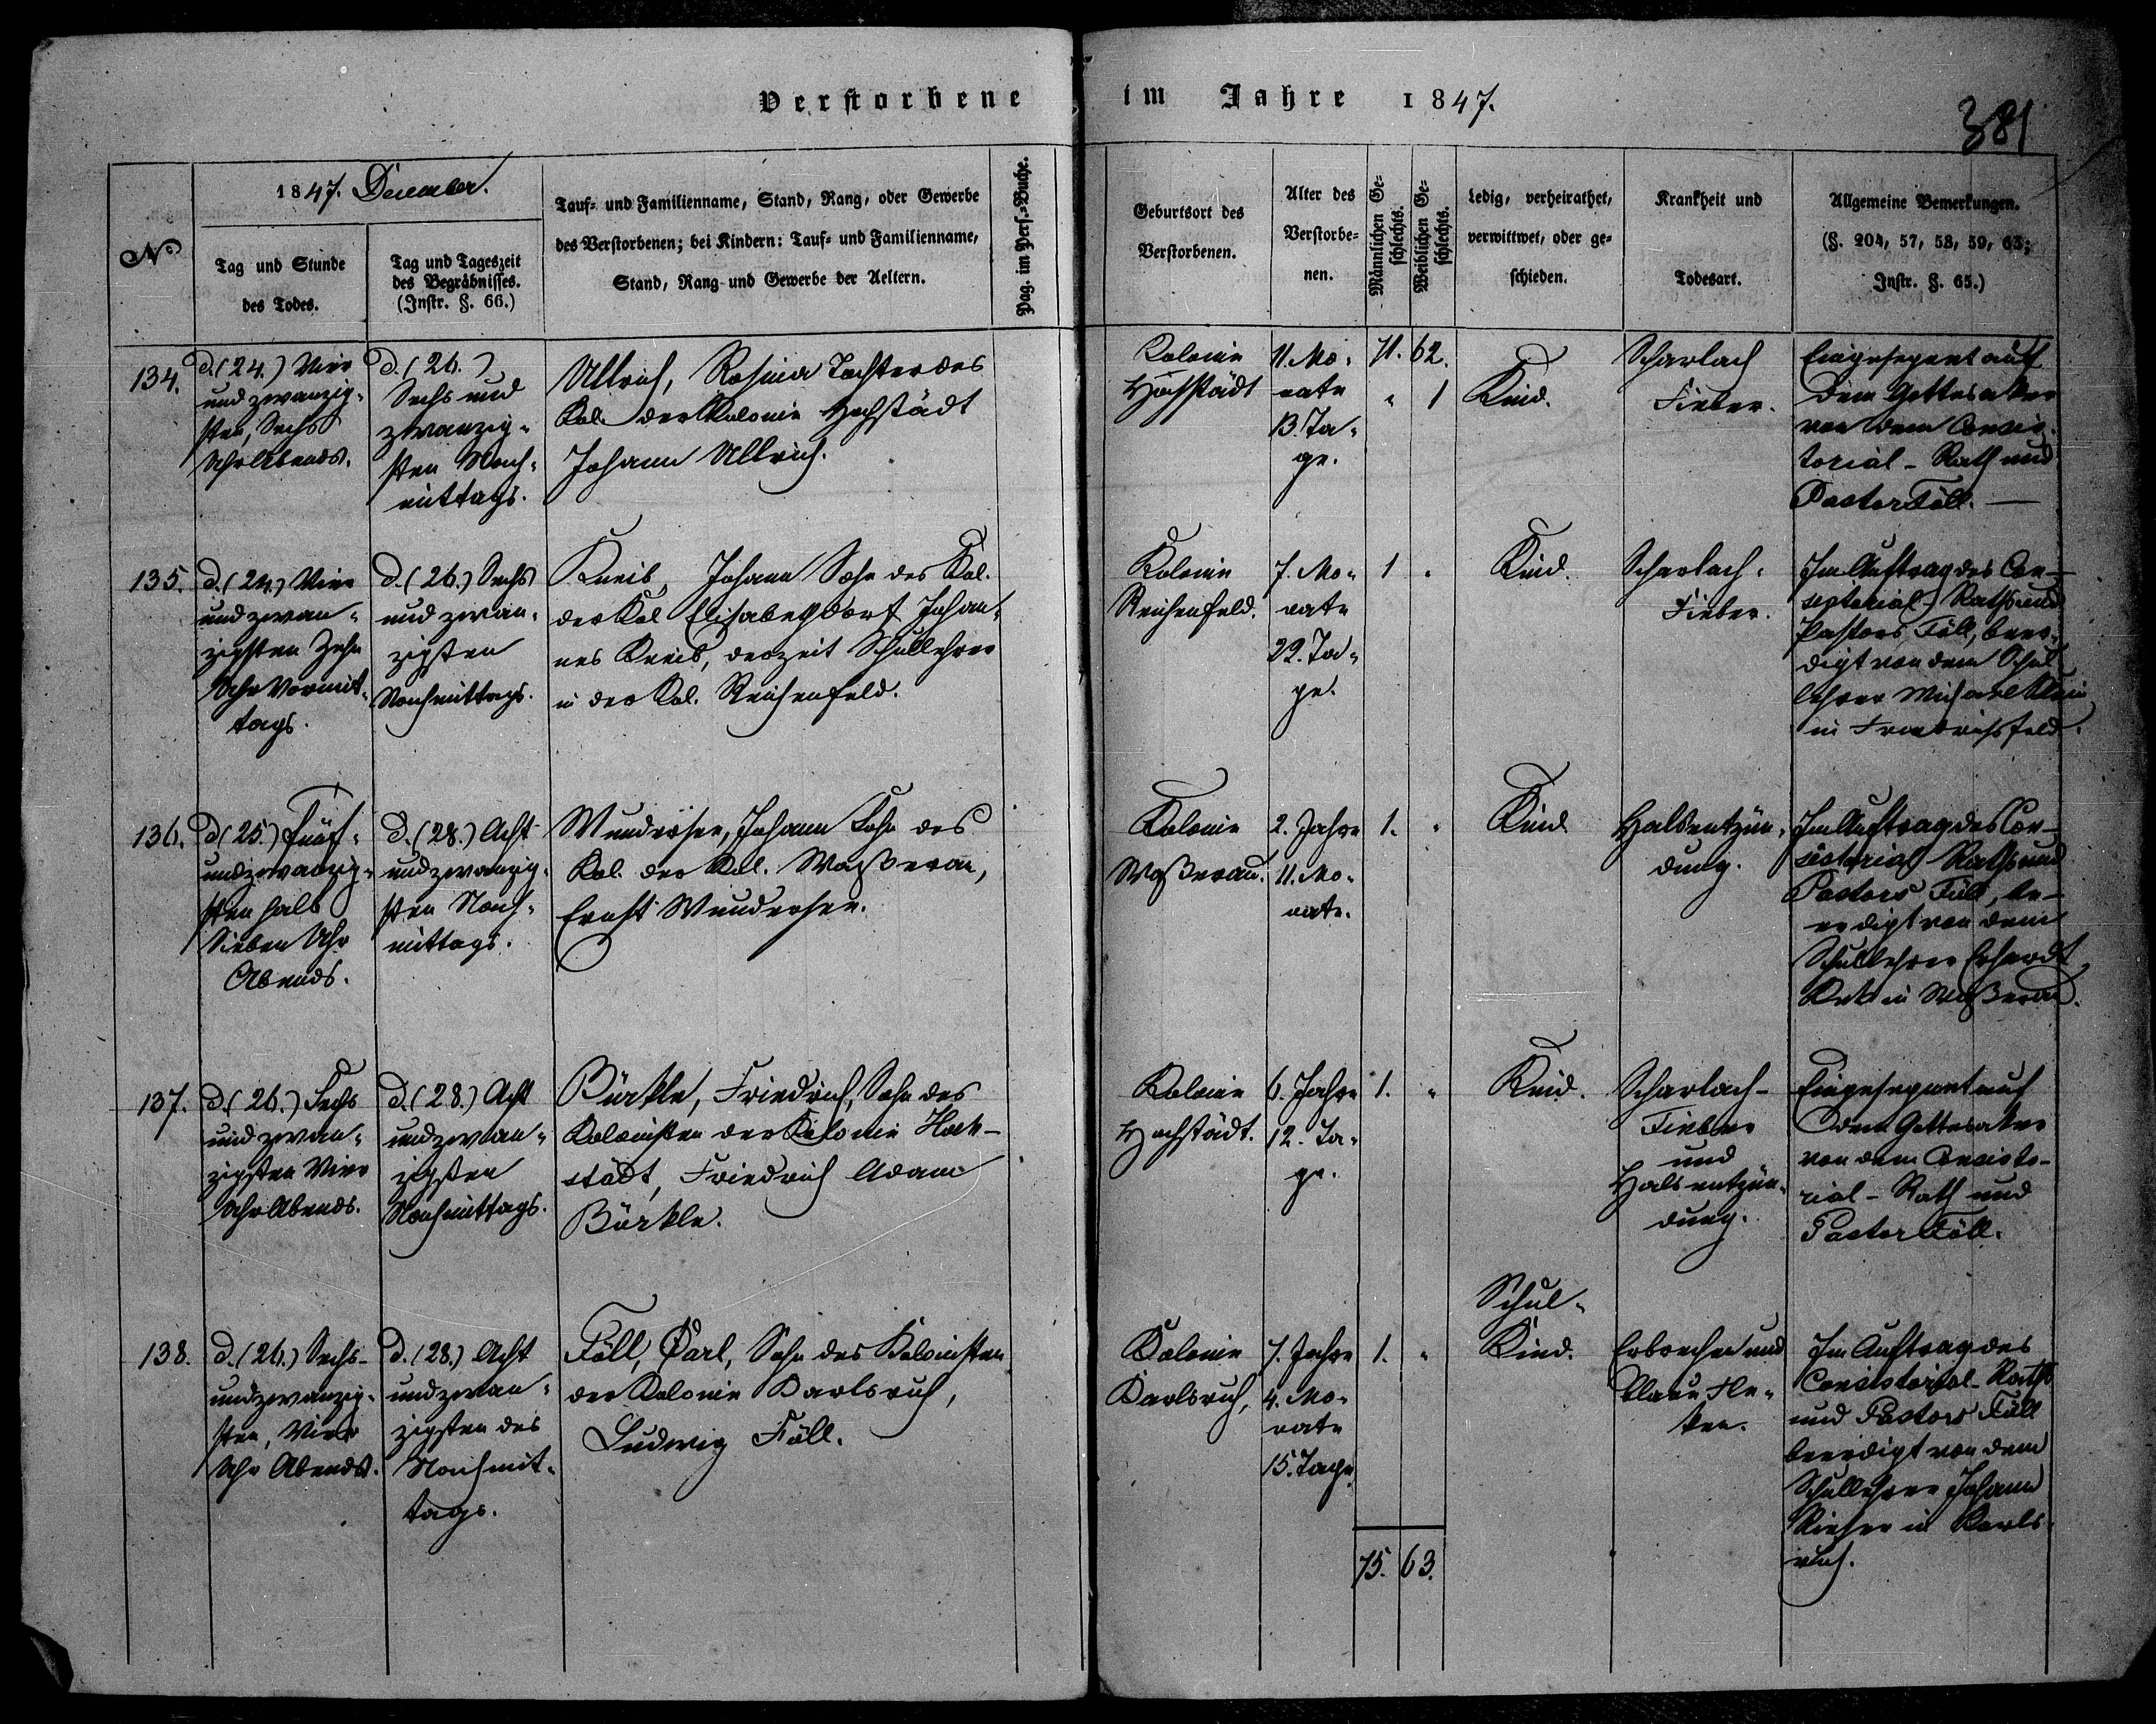 Verstorbene im Jahre 1847.
381
No
1847. December.
Tag und Stunde
des Todes.
Tag und Tageszeit
des Begräbnisses.
(Instr. §. 66.)
Tauf= und Familienname, Stand, Rang, oder Gewerbe
des Verstorbenen; bei Kindern: Tauf= und Familienname,
Stand, Rang und Gewerbe der Aeltern.
Pag. im Pers.=Buche.
Geburtsort des
Verstorbenen.
Alter des
Verstorbe=
nen.
Männlichen Ge=
schlechts.
Weiblichen Ge=
schlechts.
Ledig, verheirathet,
verwittwet, oder ge=
schieden.
Krankheit und
Todesart.
Allgemeine Bemerkungen.
(§. 204, 57, 58, 59, 63;
Instr. §. 65.)
134.
d. (24.) Vier
und zwanzig-
sten, Sechs
Uhr Abends.
d. (26.)
Sechs und
zwanzig-
sten Nach-
mittags.
Ullrich, Rosina Tochter des
Kol. der Kolonie Hochstädt
Johann Ullrich.
Kolonie
Hochstädt
11. Mo-
nate
13. Ta-
ge.
71. 62.
" 1
Kind.
Scharlach
Fieber.
Eingesegnet auf
dem Gottesaker
von dem Consis-
torial-Rath und
Pastor Föll. —
135.
d. (24.) Vier
und zwan-
zigsten Zehn
Uhr Vormit-
tags.
d. (26.) Sechs
und zwan-
zigsten
Nachmittags.
Kneib, Johann Sohn des Kol.
der Kol Elisabethdorf Johan-
nes Kneib, derzeit Schullehrer
in der Kol. Reichenfeld.
Kolonie
Reichenfeld.
7. Mo-
nate
22. Ta-
ge.
1 "
Kind.
Scharlach-
Fieber.
Im Auftrag des Con-
sistorial-Raths und
Pastors Föll, beer-
digt von dem Schul-
lehrer Michael Klein
in Friedrichsfeld.
136.
d (25.) Fünf-
und zwanzig-
sten halb
Sieben Uhr
Abends.
d. (28.) Acht
und zwanzig-
sten Nach-
mittags.
Sohn des
Kol. der Kol. Waßerau,
Ernst
Kolonie
Waßerau.
2. Jahre
11. Mo-
nate.
1. "
Kind.
Halsentzün-
dung.
Im Auftrag des Con-
sistorial-Raths und
Pastors Föll, be-
erdigt von dem
Schullehrer Erhardt
in Waßerau.
137.
d. (26.) Sechs
und zwan-
zigsten Vier
Uhr Abends.
d. (28.) Acht
und zwan-
zigsten
Nachmittags.
Bürkle, Friedrich, Sohn des
Kolonisten der Kolonie Hoch-
städt, Friedrich Adam
Bürkle.
Kolonie
Hochstädt.
6. Jahre
12. Ta-
ge.
1. "
Kind.
Scharlach-
Fieber
und
Halsentzün-
dung.
Eingesegnet auf
dem Gottesaker
von dem Consisto-
rial-Rath und
Pastor Föll.
138.
d. (26.) Sechs-
und zwanzig-
sten, Vier
Uhr Abends.
d. (28.) Acht
und zwan-
zigsten des
Nachmit-
tags.
Föll, Carl, Sohn des Kolonisten
der Kolonie Karlsruh,
Ludwig Föll.
Kolonie
Karlsruh,
7. Jahre
4. Mo-
nate
15. Tage
1. "
Schul-
Kind.
Erbrechen und
blaue Fle-
ken.
Im Auftrag des
Consistorial-Raths
und Pastors Föll
beerdigt von dem
Schullehrer Johann
in Karls-
ruh.
75. 63.